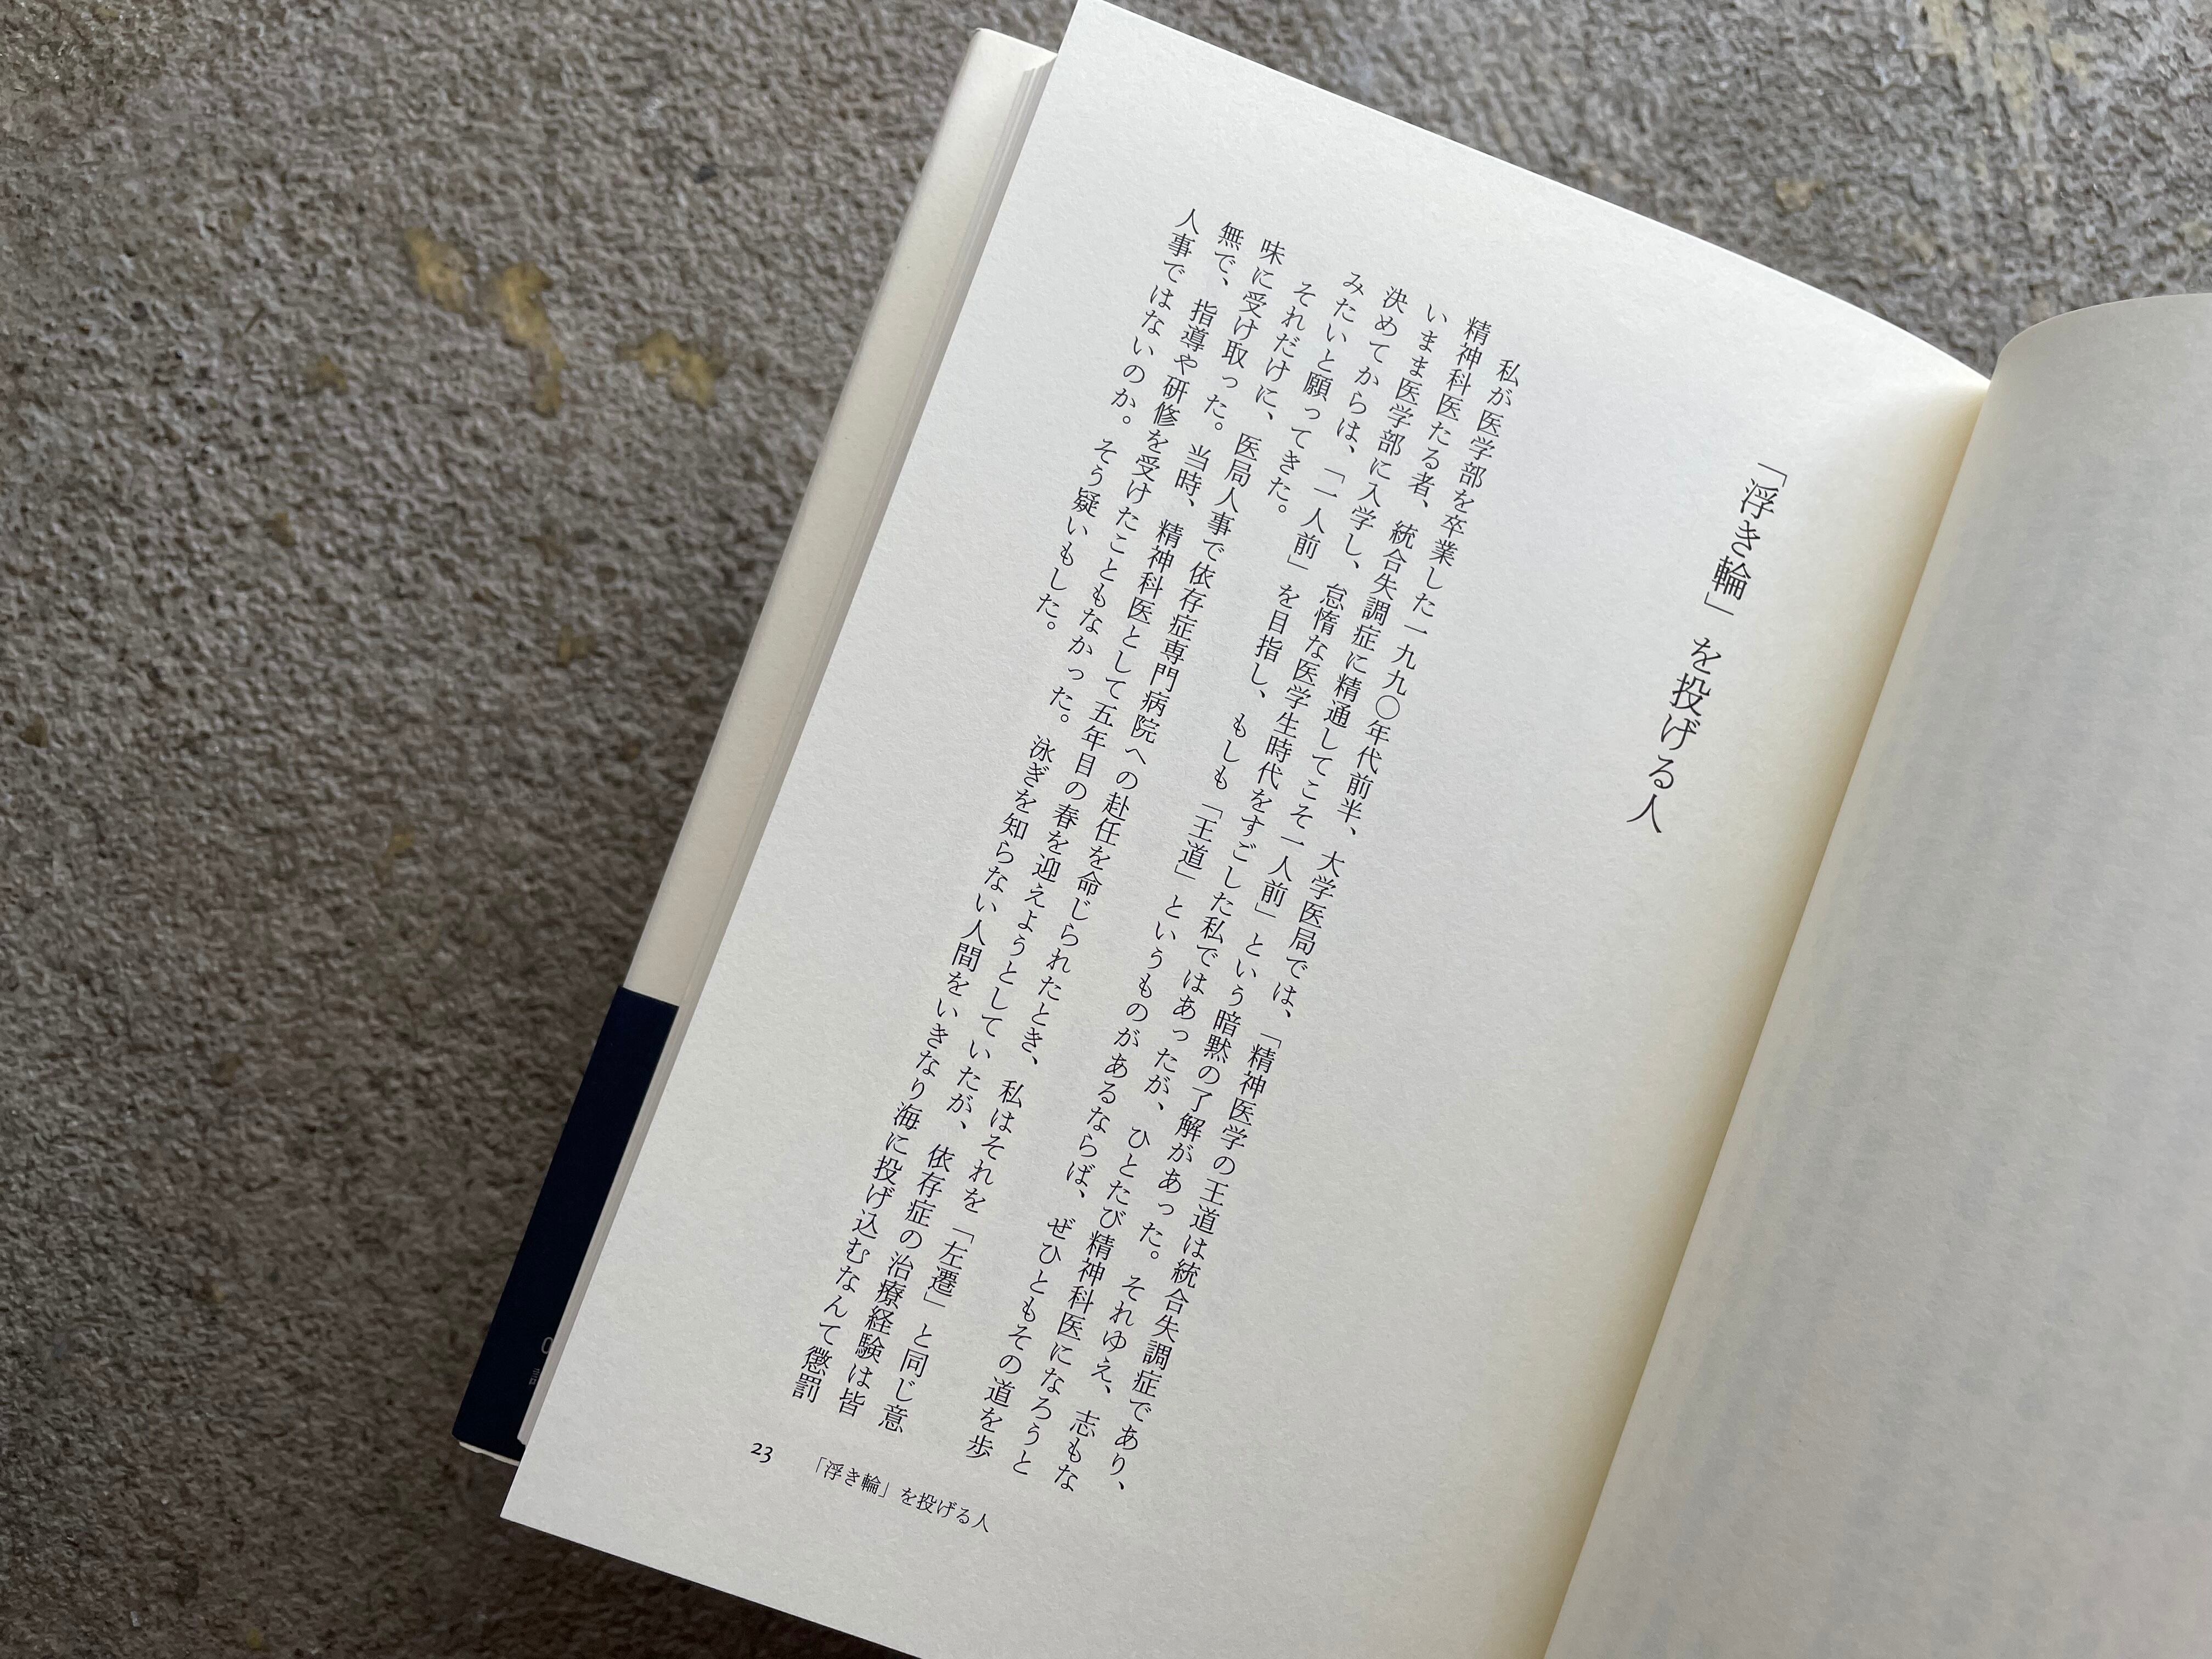 「浮き輪」を投げる人
私が医学部を卒業した一九九〇年代前半、大学医局では、「精神医学の王道は統合失調症であり、
精神科医たる者、統合失調症に精通してこそ一人前」という暗黙の了解があった。それゆえ、志もな
いまま医学部に入学し、怠惰な医学生時代をすごした私ではあったが、ひとたび精神科医になろうと
決めてからは、「一人前」を目指し、もしも「王道」というものがあるならば、ぜひともその道を歩
みたいと願ってきた。
それだけに、医局人事で依存症専門病院への赴任を命じられたとき、私はそれを「左遷」と同じ意
味に受け取った。当時、精神科医として五年目の春を迎えようとしていたが、依存症の治療経験は皆
無で、指導や研修を受けたこともなかった。泳ぎを知らない人間をいきなり海に投げ込むなんて懲罰
人事ではないのか。そう疑いもした。
23
「浮き輪」を投げる人